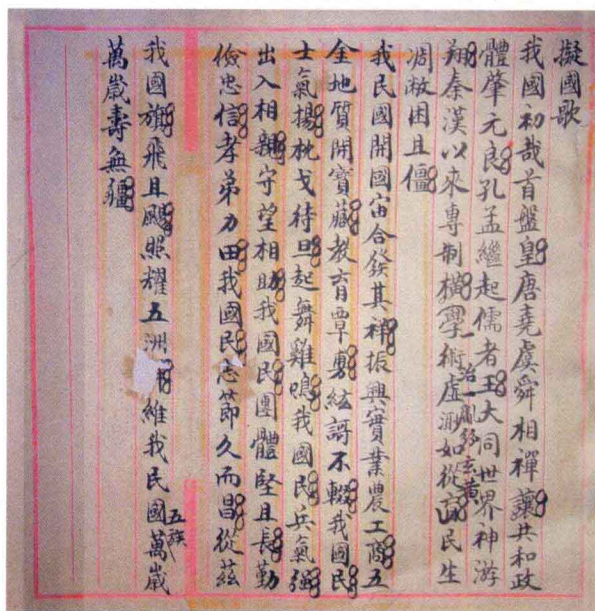 擬國歌
我國初哉首盤皇唐堯虞舜相禪讓共和政
體肇元良孔孟繼起儒者王大同世界神游
翔秦漢以來專制橫學術虛渺如從盲民生
一治一亂紛玄黃
凋敝困且僵
我民國開國宙合發其祥振興實業農工商五
金地質開寶藏教育覃敷絃謌不輟我國民
士氣揚枕戈待旦起舞雞鳴我國民兵氣強
出入相親守望相助我國民團體堅且長勤
儉忠信孝弟力田我國民志節久而昌從茲
我國旗飛且颺照耀五洲維我民國萬歲
五族
萬歲壽無疆